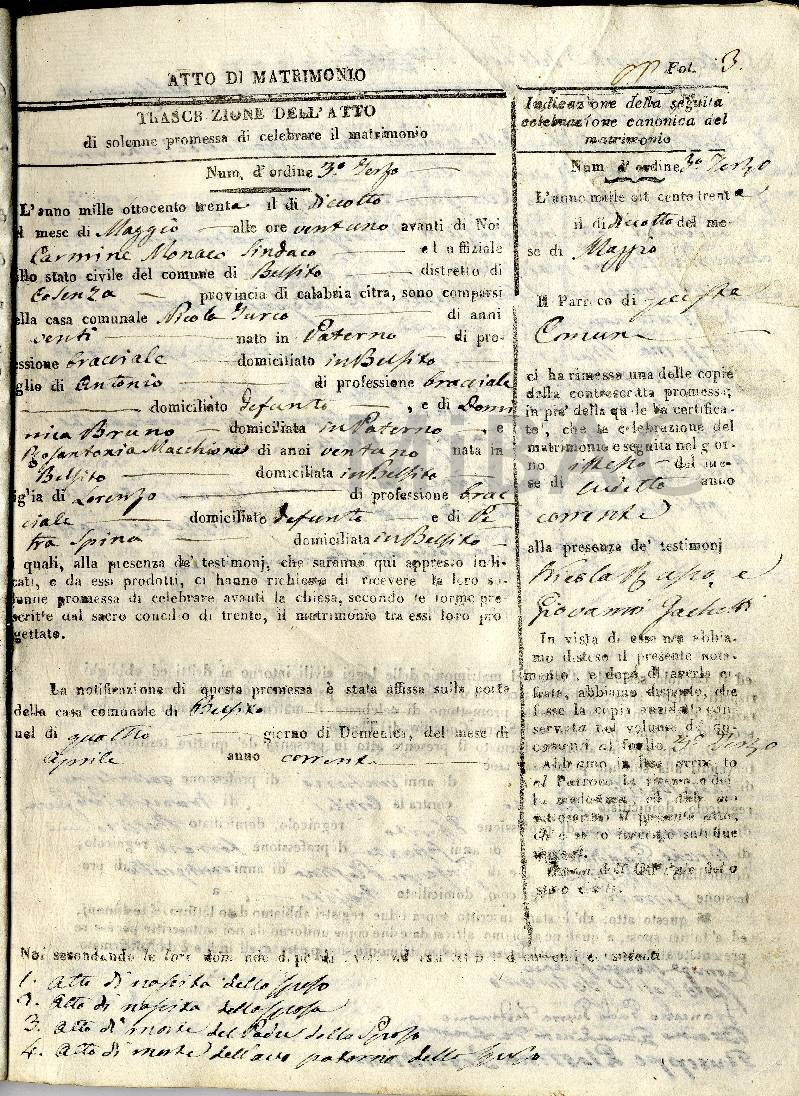 Fol. 3.
ATTO DI MATRIMONIO
TRASCRIZIONE DELL'ATTO
di solenne promessa di celebrare il matrimonio
Num. d'ordine 3° Terzo
L'anno mille ottocento trenta il di Diciotto
l mese di Maggio alle ore ventuno avanti di Noi
Carmine Monaco Sindaco ed uffiziale
llo stato civile del comune di Belsito distretto di
Cosenza provincia di calabria citra, sono comparsi
ella casa comunale Nicola Turco di anni
venti nato in Paterno di pro-
essione bracciale domiciliato in Belsito
glio di Antonio di professione bracciale
domiciliato defunto, e di Domi
nica Bruno domiciliata in Paterno, e
Rosantonia Macchione di anni ventuno nata in
Belsito domiciliata in Belsito
iglia di Lorenzo di professione brac
ciale domiciliato defunto e di Pe
tra Spina domiciliata in Belsito
quali, alla presenza de' testimonj, che saranno qui appresso indi-
cati, e da essi prodotti, ci hanno richiesto di ricevere la loro so-
lenne promessa di celebrare avanti la chiesa, secondo le forme pre-
scritte dal sacro concilio di trento, il matrimonio tra essi loro pro
gettato.
La notificazione di questa promessa è stata affissa sulla porta
della casa comunale di Belsito
nel di quattro giorno di Domenica, del mese di
Aprile anno corrente
Noi secondando le loro
1. Atto di nascita dello Sposo
2. Atto di nascita della Sposa
3. Atto di morte del Padre dello Sposo
4. Atto di morte dell'avo paterno dello Sposo
Indicazione della seguita
celebrazione canonica del
matrimonio
Num d'ordine 3° Terzo
L'anno mille ott cento trenta
il di Diciotto del me-
se di Maggio
Il Parroco di questa
Comune
ci ha rimessa una delle copie
della controscritta promessa;
in piè della quale ha certifica-
to, che la celebrazione del
matrimonio è seguita nel gior-
no istesso del me-
se di anno
corrente
alla presenza de' testimonj
Nicola Raso, e
Giovanni
In vista di essa noi abbia-
mo disteso il presente nota-
mento, e dopo di averla ci
frata, abbiamo disposto, che
fosse la copia anzidetta con-
servata nel volume de' do
cumenti al foglio 3° Terzo
Abbiamo in oltre
al Parroco la ricevuta del
la medesima, ed
il presente atto,
MiBAC